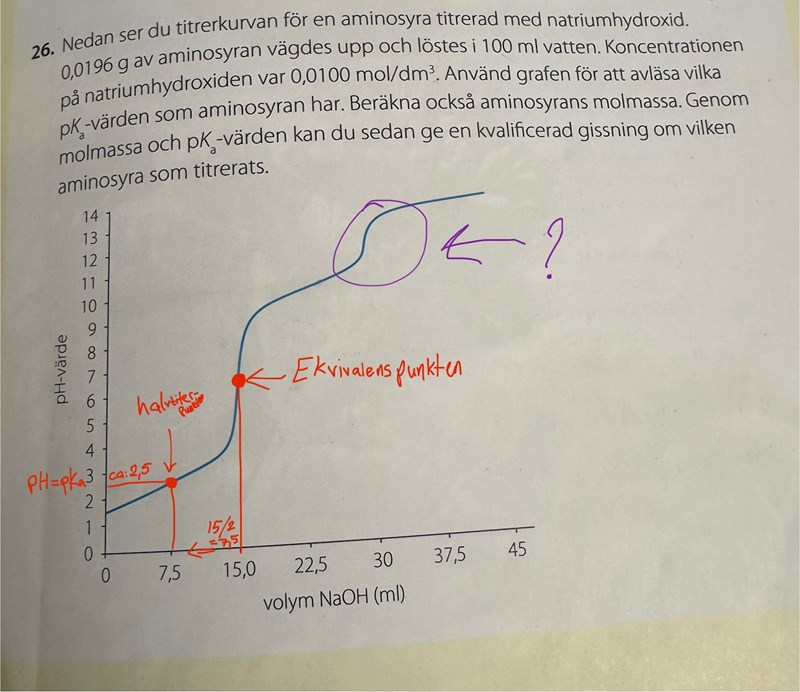 26. Nedan ser du titrerkurvan för en aminosyra titrerad med natriumhydroxid.
0,0196 g av aminosyran vägdes upp och löstes i 100 ml vatten. Koncentrationen
på natriumhydroxiden var 0,0100 mol/dm³. Använd grafen för att avläsa vilka
pKₐ-värden som aminosyran har. Beräkna också aminosyrans molmassa. Genom
molmassa och pKₐ-värden kan du sedan ge en kvalificerad gissning om vilken
aminosyra som titrerats.
14
13
12
11
10
9
8
7
6
5
4
3
2
1
0
pH-värde
?
Ekvivalenspunkten
halvtiter-
punkten
pH=pKₐ
ca: 2,5
15/2
=7,5
0
7,5
15,0
22,5
30
37,5
45
volym NaOH (ml)